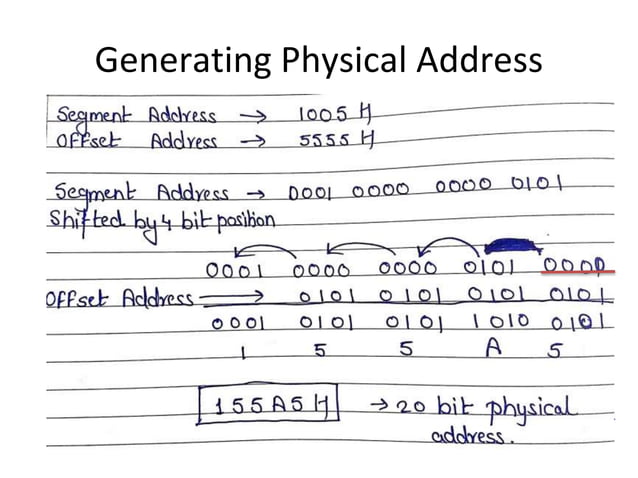 Generating Physical Address
Segment Address → 1005 H
Offset Address → 5555 H
Segment Address → 0001 0000 0000 0101
Shifted by 4 bit position
0001 0000 0000 0101 0000
Offset Address → 0101 0101 0101 0101
0001 0101 0101 1010 0101
1 5 5 A 5
155A5 H → 20 bit physical
address.